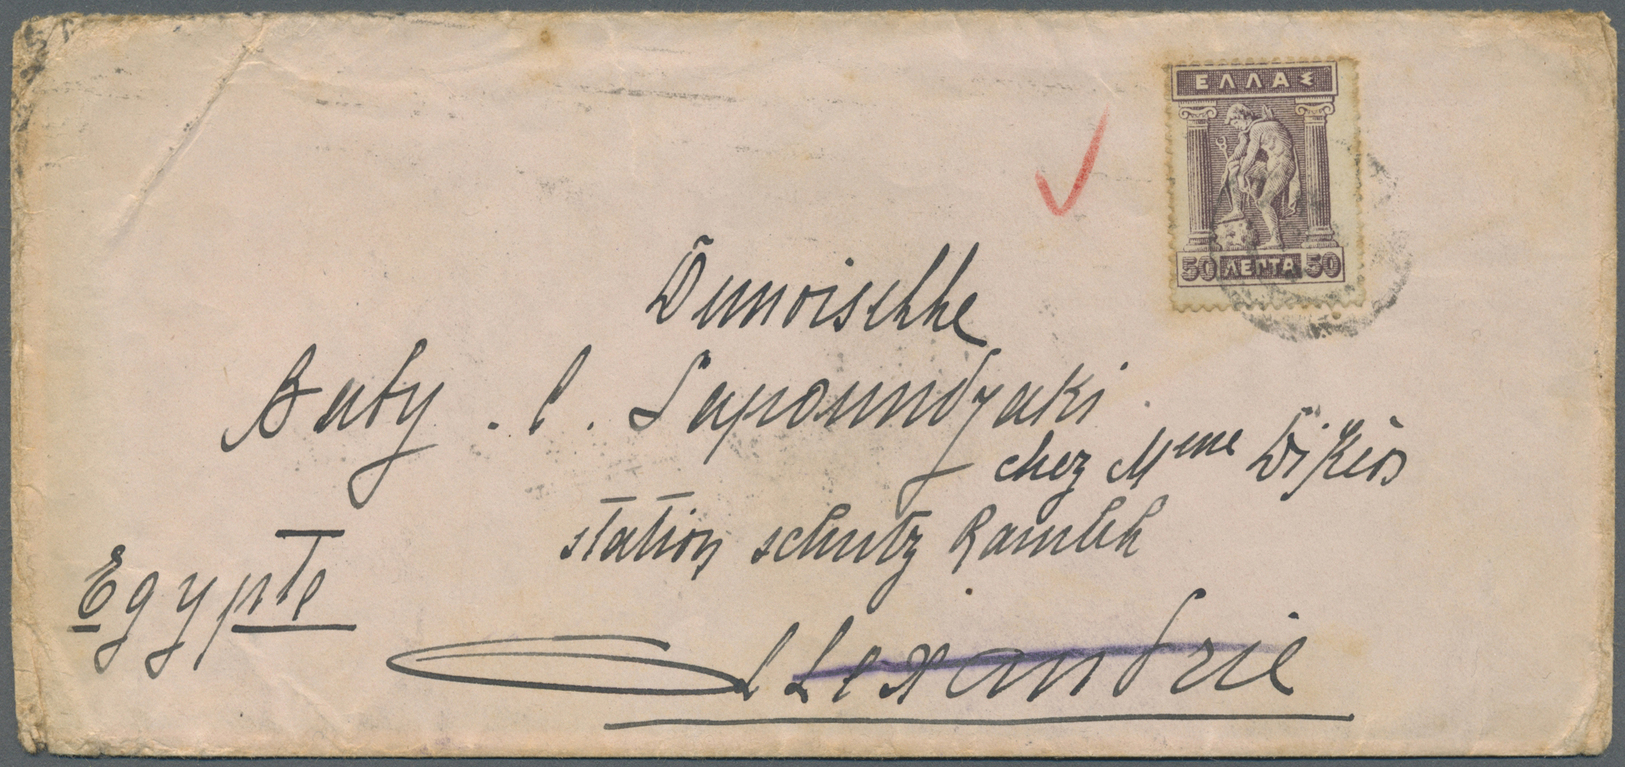 ΕΛΛΑΣ
50 ΛΕΠΤΑ 50
Baby. C. Sapoundzaki
chez Mme Dikéos
station schutz Ramleh
Egypte
Alexandrie